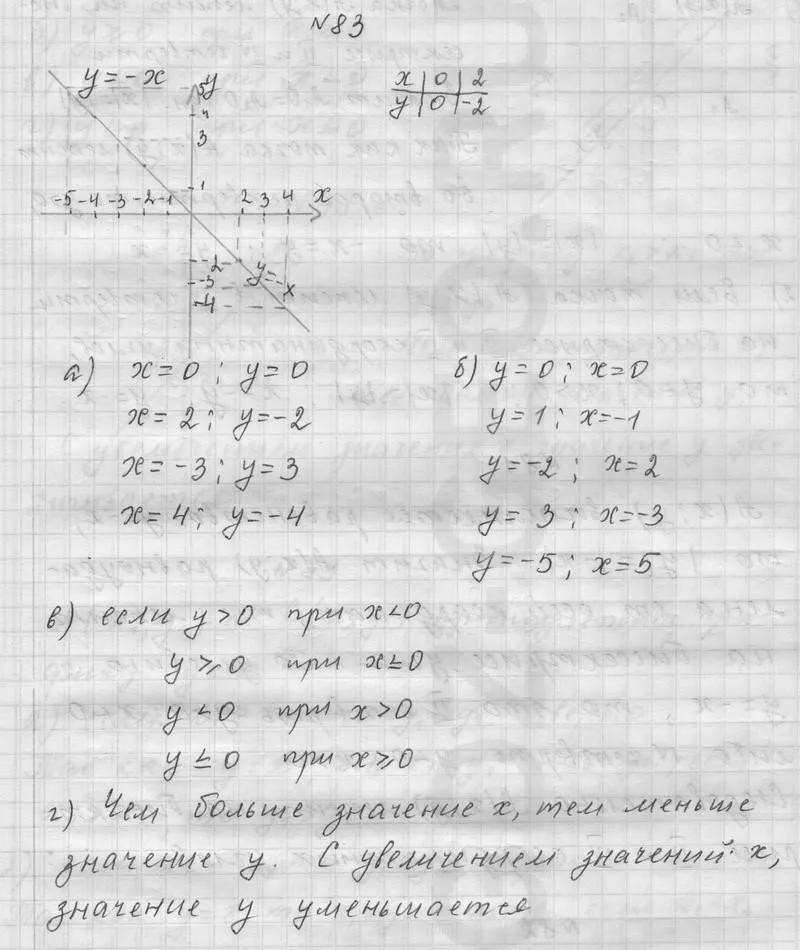 №83
y=-x
y
x | 0 | 2
y | 0 | -2
5
4
3
1
-5 -4 -3 -2 -1 2 3 4 x
-2
-3
-4
y=-x
а) x=0; y=0
x=2; y=-2
x=-3; y=3
x=4; y=-4
б) y=0; x=0
y=1; x=-1
y=-2; x=2
y=3; x=-3
y=-5; x=5
в) если y>0 при x<0
y≥0 при x≤0
y<0 при x>0
y≤0 при x≥0
г) Чем больше значение x, тем меньше
значение y. С увеличением значений x,
значение y уменьшается